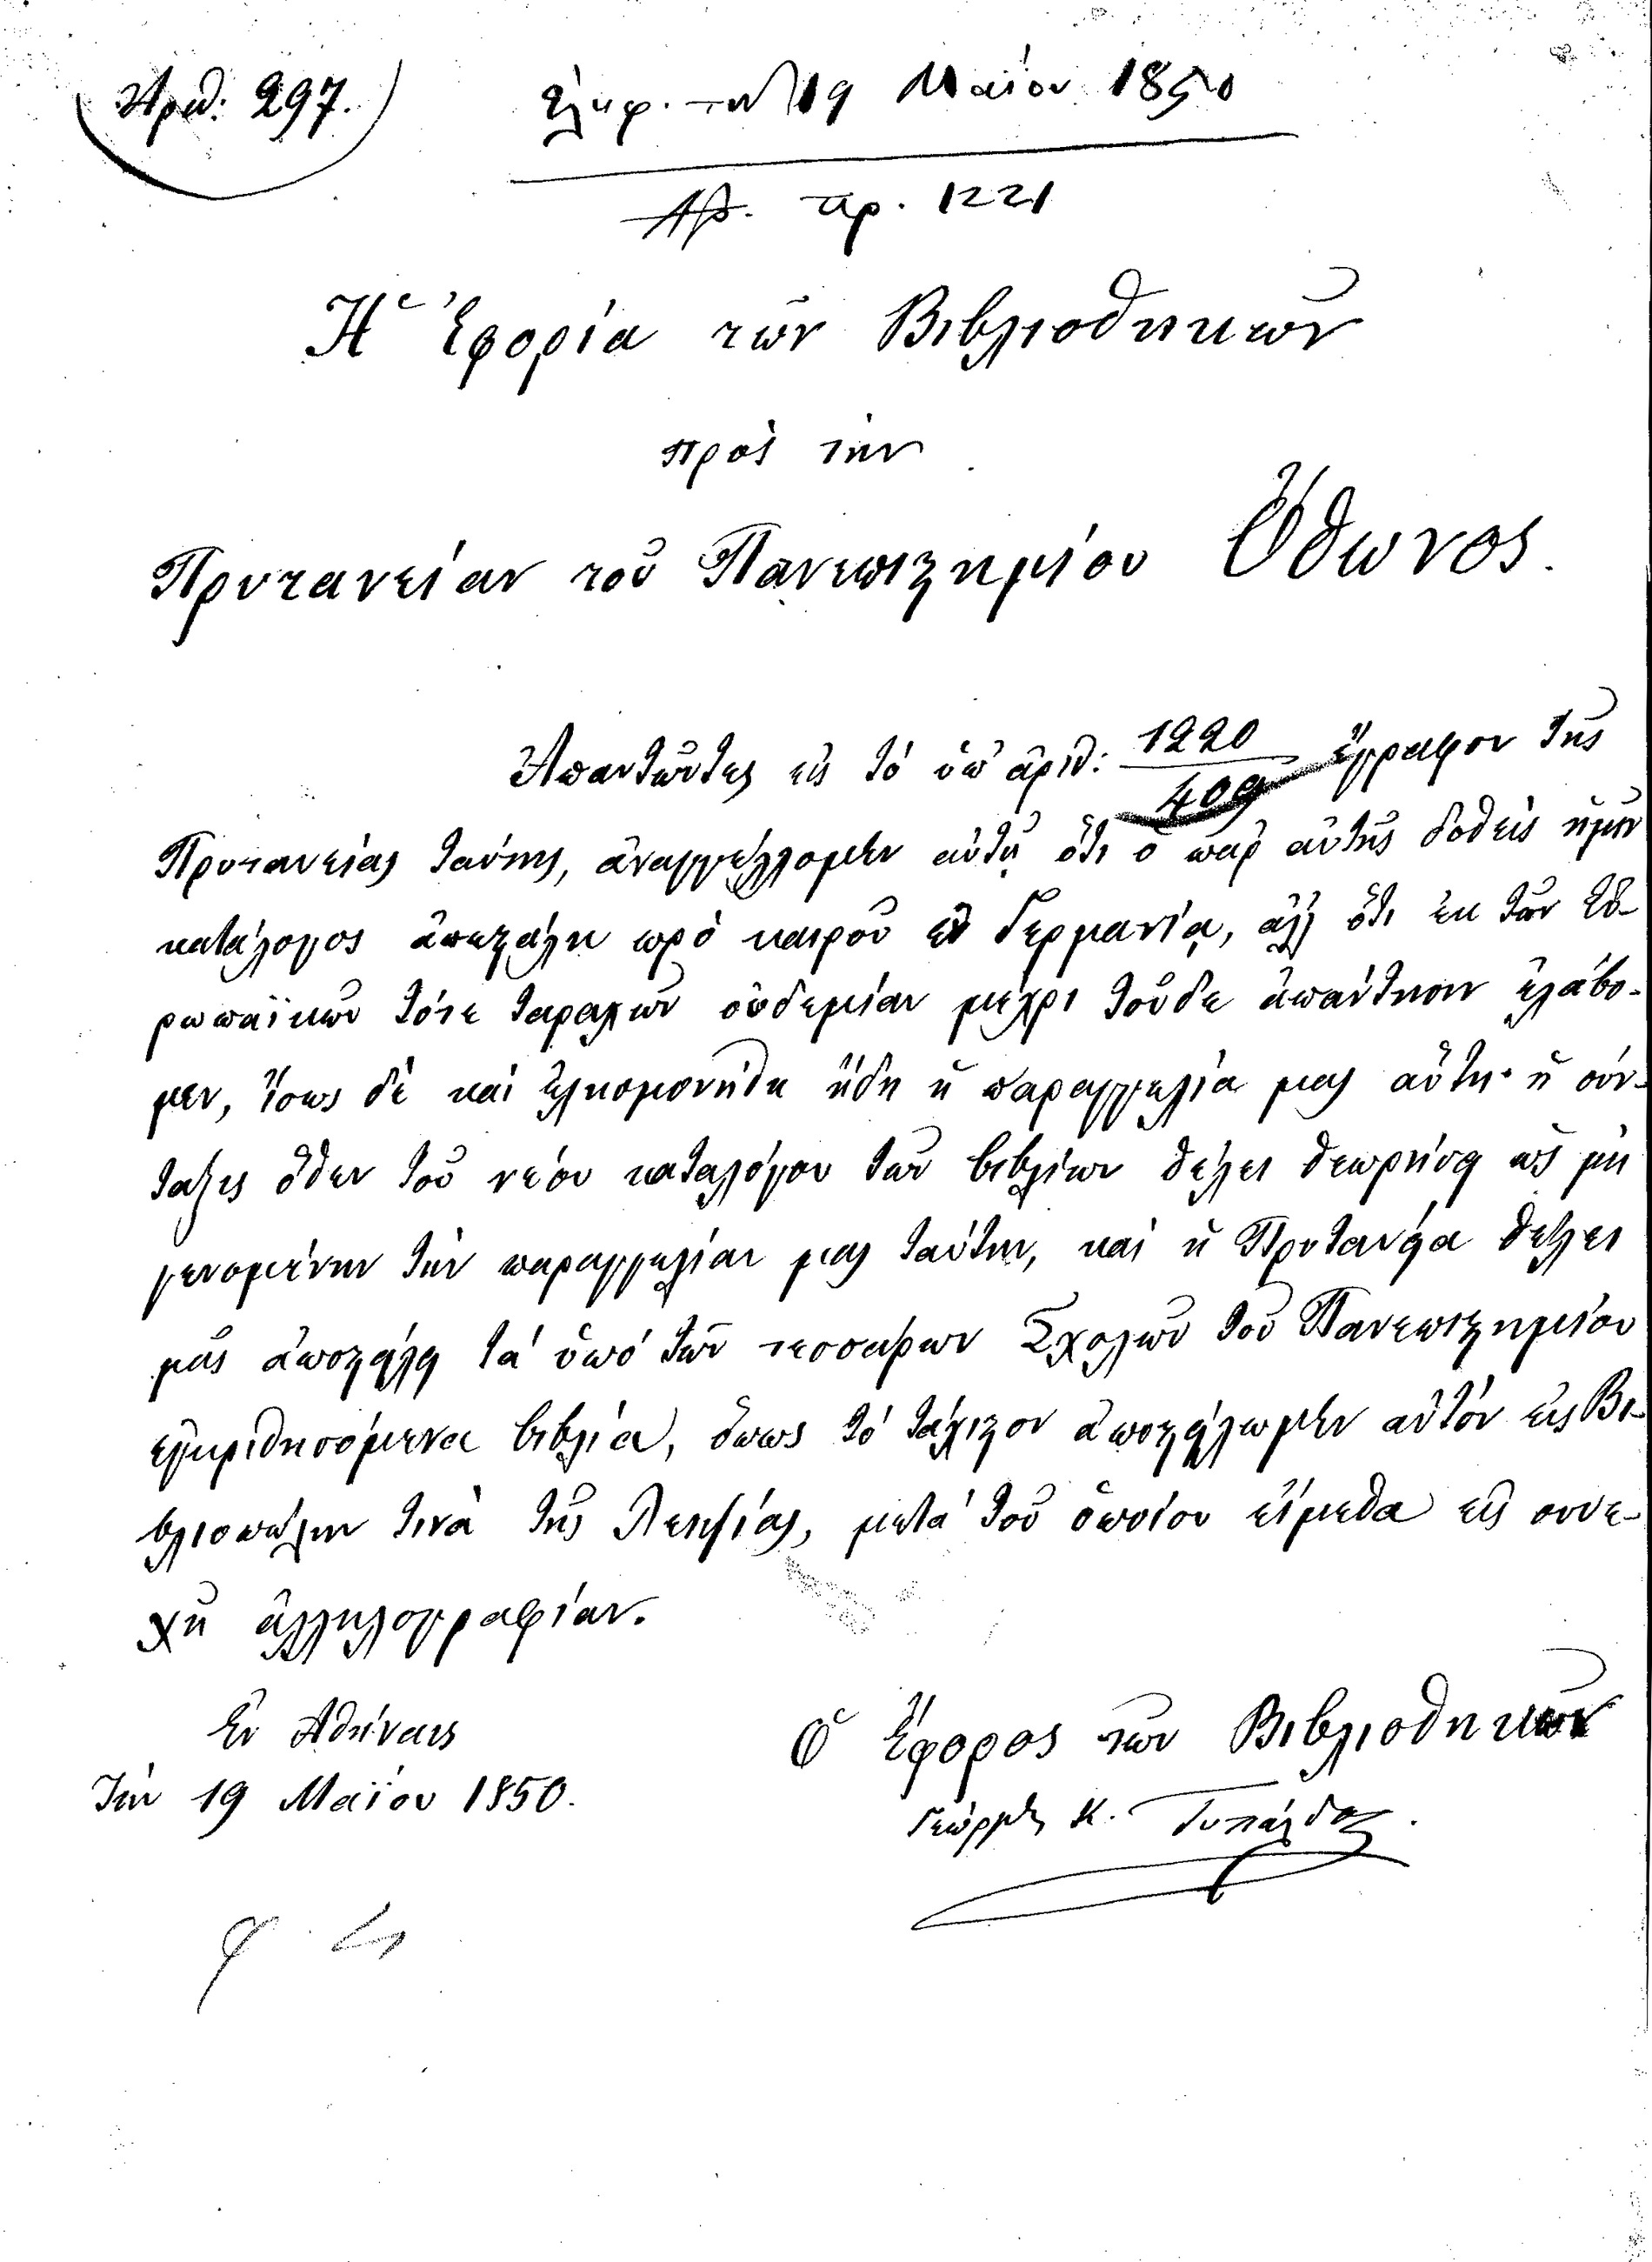 Ἀριθ: 297.
Ἐλήφ. τὴν 19 Μαΐου 1850
Ἀρ. πρ. 1221
Ἡ Ἐφορία τῶν Βιβλιοθηκῶν
πρὸς τὴν
Πρυτανείαν τοῦ Πανεπιστημίου Ὄθωνος.
Ἀπαντῶντες εἰς τὸ ὑπ' ἀριθ: 1220/409 ἔγγραφον τῆς
Πρυτανείας ταύτης, ἀναγγέλλομεν αὐτῇ ὅτι ὁ παρ' αὐτῆς δοθεὶς ἡμῖν
κατάλογος ἀπεστάλη πρὸ καιροῦ ἐν Γερμανίᾳ, ἀλλ' ὅτι ἐκ τῶν Εὐ-
ρωπαϊκῶν τότε ταραχῶν οὐδεμίαν μέχρι τοῦδε ἀπάντησιν ἐλάβο-
μεν, ἴσως δὲ καὶ ἐλησμονήθη ἤδη ἡ παραγγελία μας αὕτη· ἡ σύν-
ταξις ὅθεν τοῦ νέου καταλόγου τῶν βιβλίων θέλει θεωρήσῃ ὡς μὴ
γενομένην τὴν παραγγελίαν μας ταύτην, καὶ ἡ Πρυτανεία θέλει
μᾶς ἀποστάλῃ τὰ ὑπὸ τῶν τεσσάρων Σχολῶν τοῦ Πανεπιστημίου
ἐγκριθησόμενα βιβλία, ὅπως τὸ τάχιστον ἀποστάλωμεν αὐτὸν εἰς Βι-
βλιοπώλην τινὰ τῆς Λειψίας, μετὰ τοῦ ὁποίου εἴμεθα εἰς συνε-
χῆ ἀλληλογραφίαν.
Ἐν Ἀθήναις
Τὴν 19 Μαΐου 1850.
Ὁ Ἔφορος τῶν Βιβλιοθηκῶν
Γεώργιος Κ. Τυπάλδος.